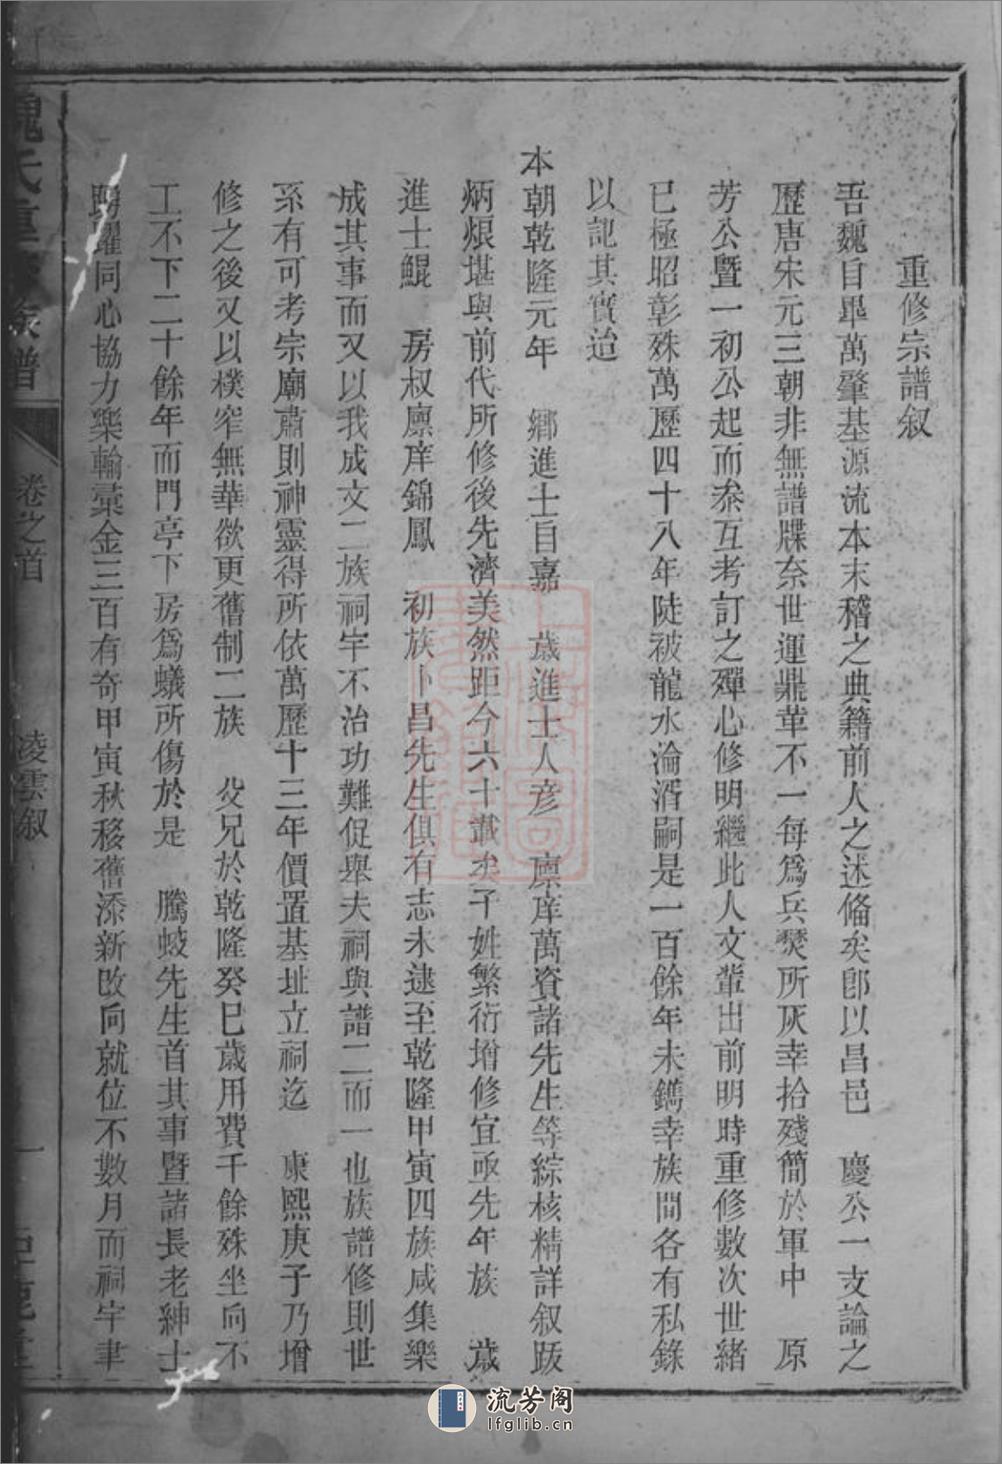 重修宗譜叙
吾魏自畢萬肇基源流本末稽之典籍前人之述俻矣卽以昌邑　慶公一支論之
歷唐宋元三朝非無譜牒奈世運鼎革不一每爲兵燹所灰幸拾殘簡於軍中　原
芳公曁一初公起而叅互考訂之殫心修明繼此人文輩出前明時重修數次世緒
已極昭彰殊萬歷四十八年陡被龍水淪湑嗣是一百餘年未鐫幸族間各有私錄
以記其實迨
本朝乾隆元年　鄉進士自嘉　歲進士人彦　廪庠萬資諸先生等綜核精詳叙跋
炳烺堪與前代所修後先濟美然距今六十載矣子姓繁衍增修宜亟先年族　歲
進士鯤　房叔廪庠錦鳳　初族卜昌先生俱有志未逮至乾隆甲寅四族咸集樂
成其事而又以我成文二族祠宇不治功難促舉夫祠與譜二而一也族譜修則世
系有可考宗廟肅則神靈得所依萬歷十三年價置基址立祠迄　康熙庚子乃增
修之後又以樸窄無華欲更舊制二族　父兄於乾隆癸巳歲用費千餘殊坐向不
工不下二十餘年而門亭下房爲蟻所傷於是　騰蛟先生首其事曁諸長老紳士
踴躍同心協力樂輸橐金三百有奇甲寅秋移舊添新改向就位不數月而祠宇聿
魏氏重修族譜
卷之首
凌雲叙
一
鉅鹿堂
流芳阁
lfglib.cn